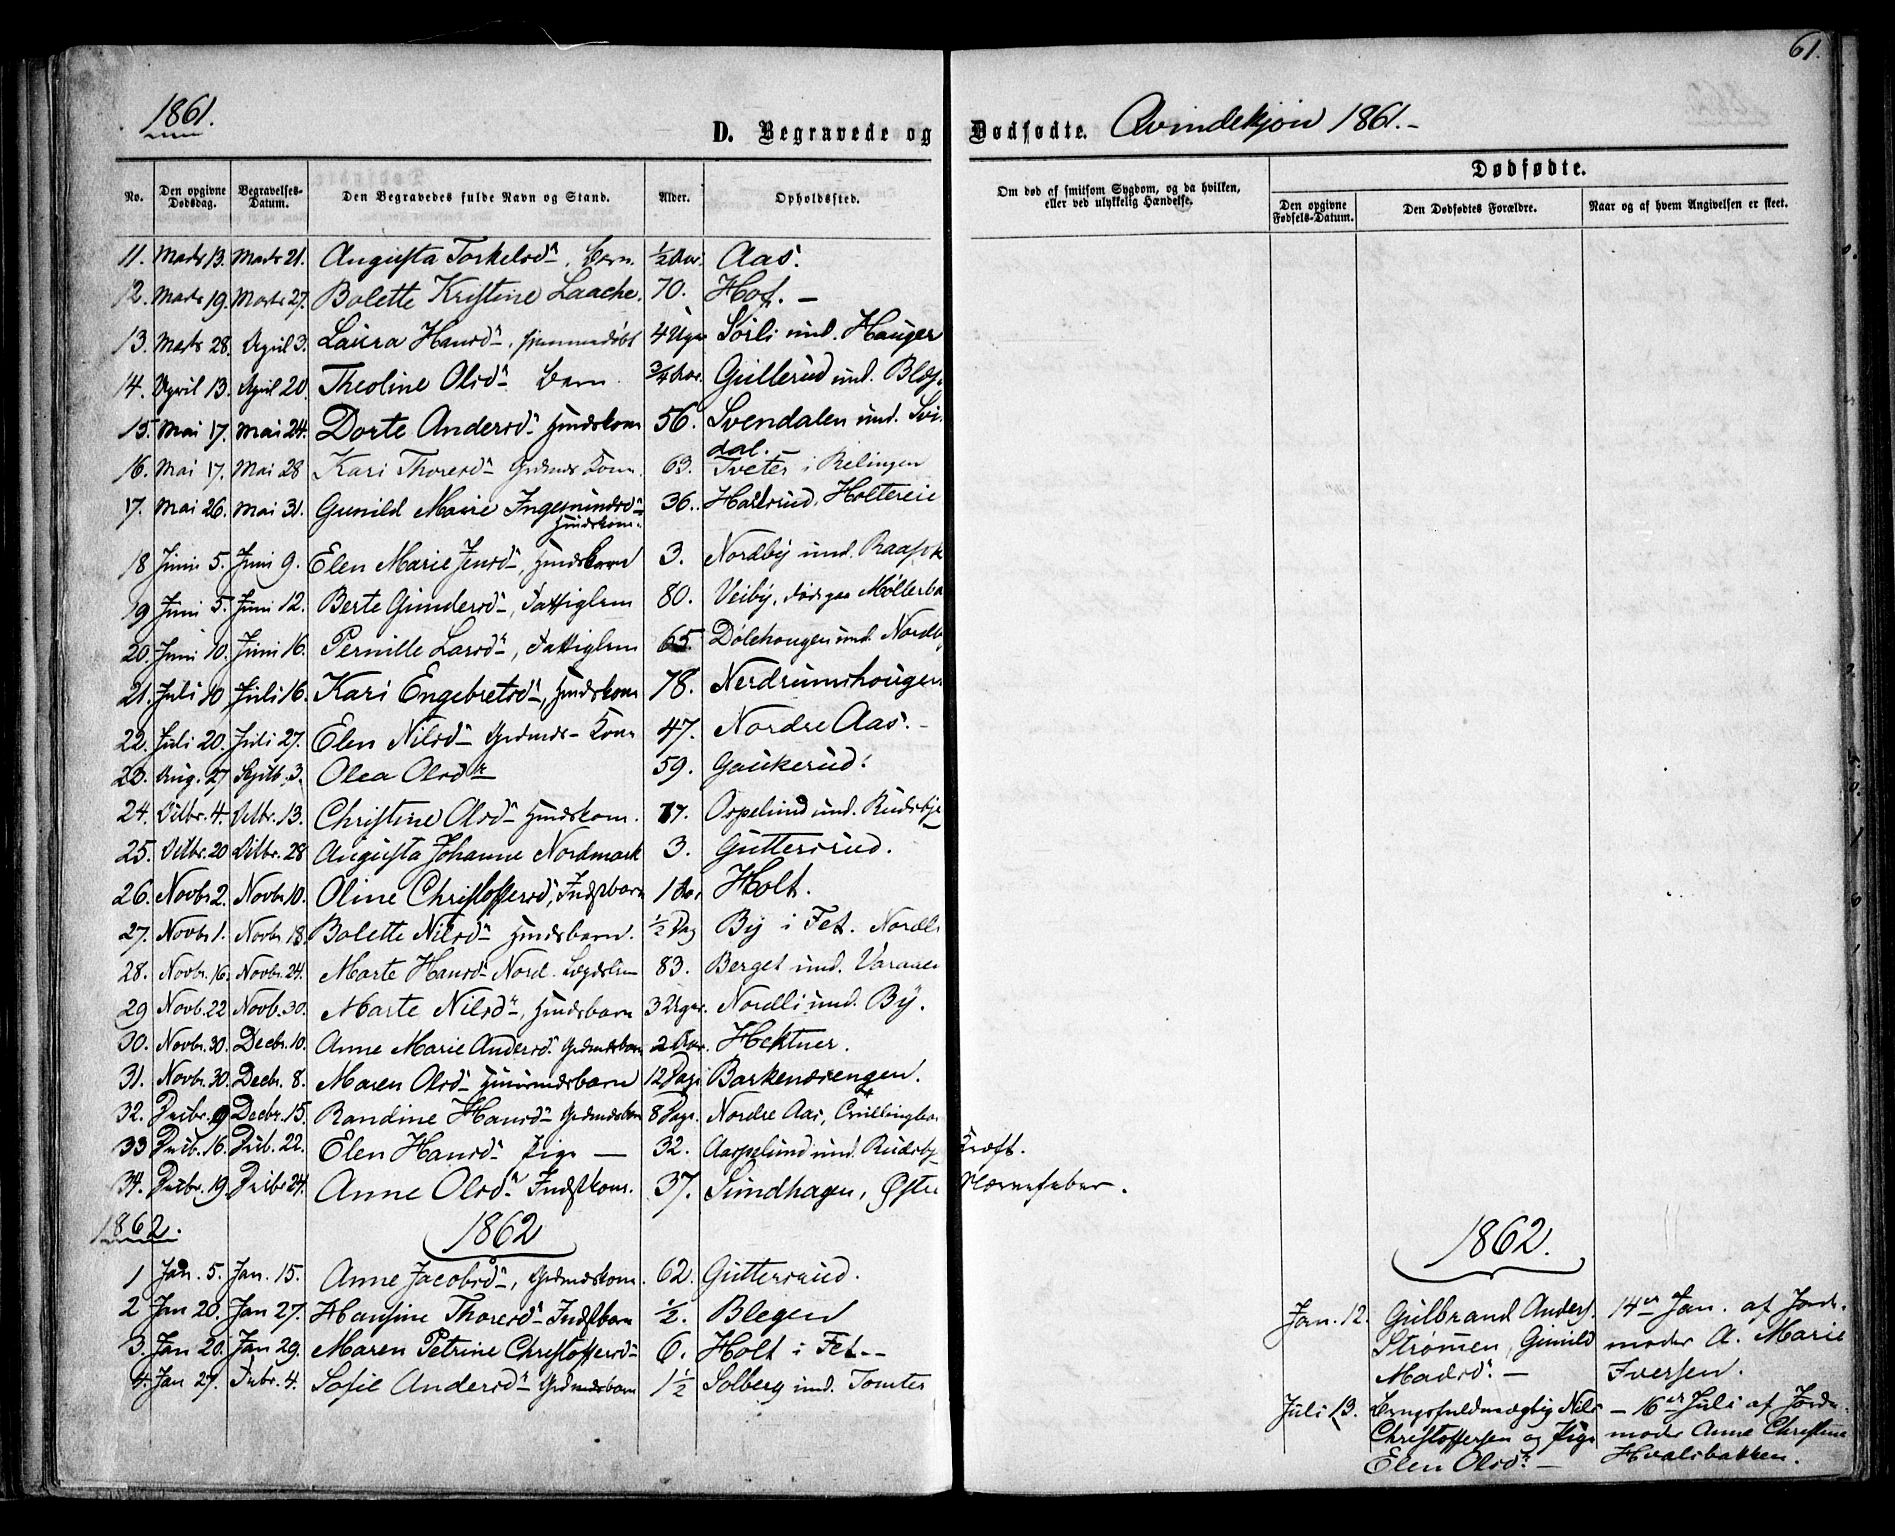 61.
1861.
D. Begravede og Dødfødte. Qvindekjøn 1861.-
Dødfødte.
No. Den opgivne Dødsdag. Begravelses-Datum. Den Begravedes fulde Navn og Stand. Alder. Opholdssted. Om død af smitsom Sygdom, og da hvilken, eller ved ulykkelig Hændelse. Den opgivne Fødsels-Datum. Den Dødfødtes Forældre. Naar og af hvem Angivelsen er skeet.
11. Marts 13. Marts 21. Augusta Torkelsd. Barn. ½ Aar. Aas.
12. Marts 19. Marts 27. Bolette Kristine Laache. 70. Hof. -
13. Marts 28. April 3. Laura Hansd., hjemmedøbt 4 Uger Sørli und. Hauger
14. April 13. April 20 Theoline Olsd. Barn. ¾ Aar. Gullerud und.
15. Mai 17. Mai 24. Dorte Andersd. Huuskone 56. Svendalen und. Svindal.
16. Mai 17. Mai 28 Kari Thoresd. Grdmds Kone 63. Tveter i Relingen
17. Mai 26. Mai 31. Gunild Marie Ingemundsd. Huuskone. 36. Holtereie
18 Juni 5. Juni 9. Elen Marie Jensd., Huusbarn 3. Nordby und.
19 Juni 5. Juni 12. Berte Gundersd., Fattiglem 80. Veiby,
20. Juni 10. Juni 16. Pernille Larsd., Fattiglem 65. Dølehougen und. Nordby
21. Juli 10. Juli 16. Kari Engebretsd., Huuskone 78. Nerdrumshougen
22. Juli 20. Juli 27. Elen Nilsd. Grdmds- Kone 47. Nordre Aas. -
23. Aug. 27. Septb. 3. Olea Olsd. 59. Gaukerud.
24. Octbr. 4. Octbr. 13. Christine Olsd. Huuskone. 77. Ospelund und. Rudsbye
25. Octbr. 20 Octbr. 28 Augusta Johanne Nordmark 3. Guttersrud.
26. Novbr. 2. Novbr. 10. Oline Christoffersd., Indstbarn 1 Aar Holt.
27. Novbr. 1. Novbr. 18. Bolette Nilsd. Huusbarn. ½ Dag By i Fet. Nordli
28. Novbr. 16. Novbr. 24. Marte Hansd. Nord. Lægdslem 83. Berget und. Varaaen
29 Novb. 22 Novb. 30. Marte Nilsd., Huusbarn 3 Uger. Nordli und. By.
30. Novbr. 30. Decbr. 10. Anne Marie Andersd. Grdmdsbarn 2 Aar. Hektner.
31. Novbr. 30. Decbr. 8. Maren Olsd. Huusmdsbarn 12 Dage Barkenæsengen.
32. Decbr. 9. Decbr. 15. Randine Hansd. Grdmdsbarn 8 Dage. Nordre Aas, Tvilling
33 Decb. 16. Decb. 22. Elen Hansd. Pige - 32. Aaspelund und. Rudsby Kræft.
34. Decbr. 19. Decbr. 24. Anne Olsd. Indstkone. 37. Sundhagen, Østre Nervefeber.
1862. 1862 1862.
1 Jan. 5. Jan. 15. Anne Jacobsd., Grdmdskone. 62. Guttersrud.
2 Jan 20. Jan 27. Hansine Thoresd. Indstbarn ½. Blegen
3. Jan 20. Jan 29. Maren Petrine Christoffersd. 6. Holt i Fet. -
4. Jan 27. Febr. 4. Sofie Andersd. Grdmdsbarn 1½ Solberg und. Tomter
Jan. 12. Gulbrand Anders. 14de Jan. af Jord-
Strømen, Gunild moder A. Marie
Madsd. - Iversen.
Juli 13. Nils - 16de Juli af Jorde-
Christoffersen og Pige moder Anne Christine
Elen Olsd. - Hvalsbakken.